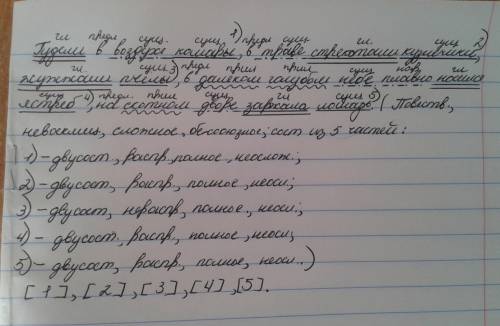 гл. предл. сущ. сущ. 1) предл. сущ. гл. сущ. 2)
Гудели в воздухе комары, в траве стрекотали кузнечики,
гл. сущ. 3) предл. прил. прил. сущ. нар. гл.
жужжали пчёлы, в далёком голубом небе плавно носился
сущ. 4) предл. прил. сущ. гл. сущ. 5)
ястреб, на скотном дворе заржала лошадь. (Повеств,
невосклиц, сложное, бессоюзное; сост. из 5 частей:
1) - двусост., распр, полное, неослож.;
2) - двусост, распр, полное, неосл;
3) - двусост, нераспр, полное, неосл.;
4) - двусост, распр, полное, неосл,
5) - двусост, распр, полное, неосл..)
[1], [2], [3], [4], [5].